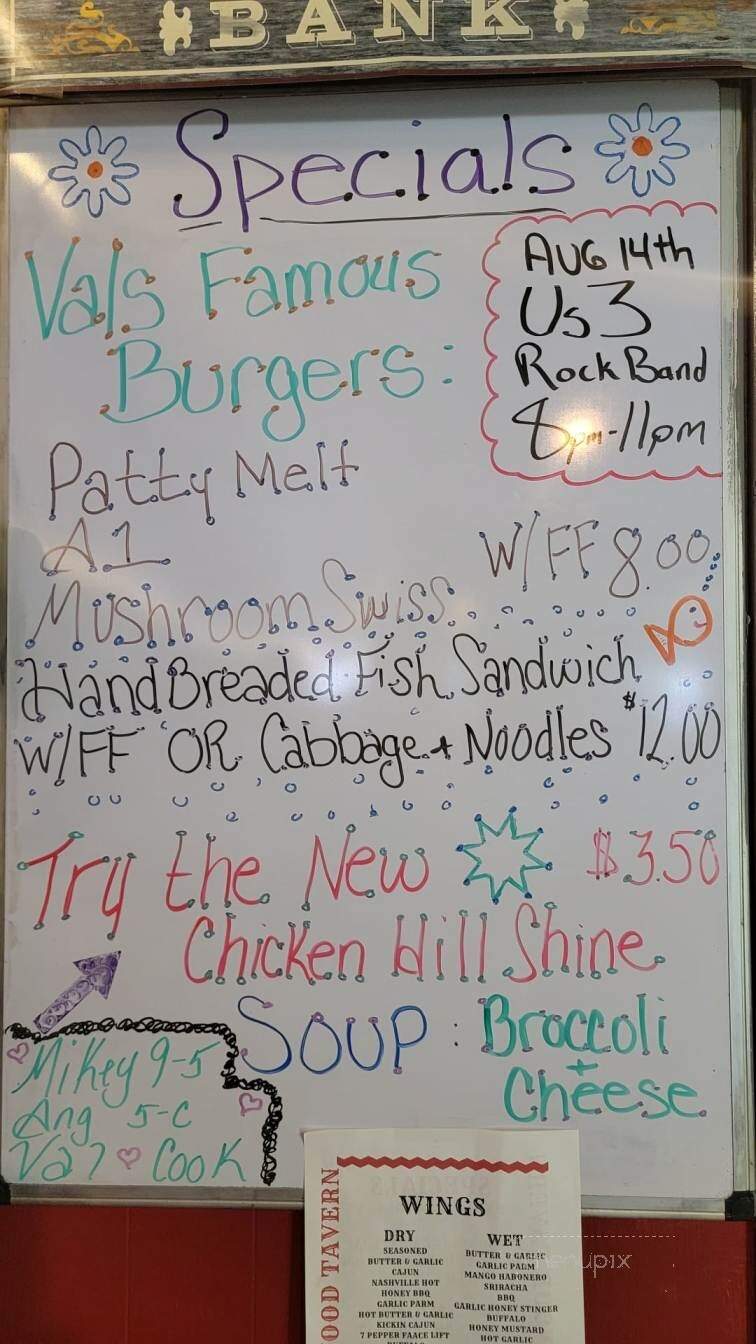 BANK
Specials
Vals Famous
Burgers:
AUG 14th
Us 3
Rock Band
8pm-11pm
Patty Melt
A1
W/FF 8.00
Mushroom Swiss
Hand Breaded Fish Sandwich
W/FF OR Cabbage + Noodles $12.00
Try the New $3.50
Chicken Hill Shine
Soup: Broccoli
+
Cheese
Mikey 9-5
Ang 5-C
Val Cook
OOD TAVERN
WINGS
DRY
SEASONED
BUTTER & GARLIC
CAJUN
NASHVILLE HOT
HONEY BBQ
GARLIC PARM
HOT BUTTER & GARLIC
KICKIN CAJUN
7 PEPPER FAACE LIFT
WET
BUTTER & GARLIC
GARLIC PARM
MANGO HABONERO
SRIRACHA
BBQ
GARLIC HONEY STINGER
BUFFALO
HONEY MUSTARD
HOT GARLIC
menupix